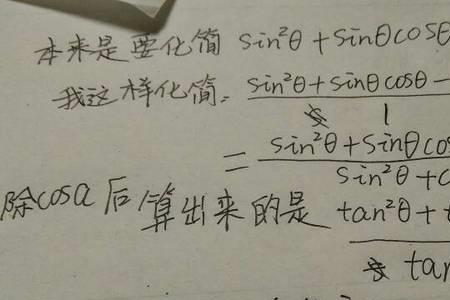 本来是要化简 sin²θ+sinθcosθ
我这样化简: sin²θ+sinθcosθ-
1
= sin²θ+sinθcos
sin²θ+c
除cosα后算出来的是 tan²θ+t
tan